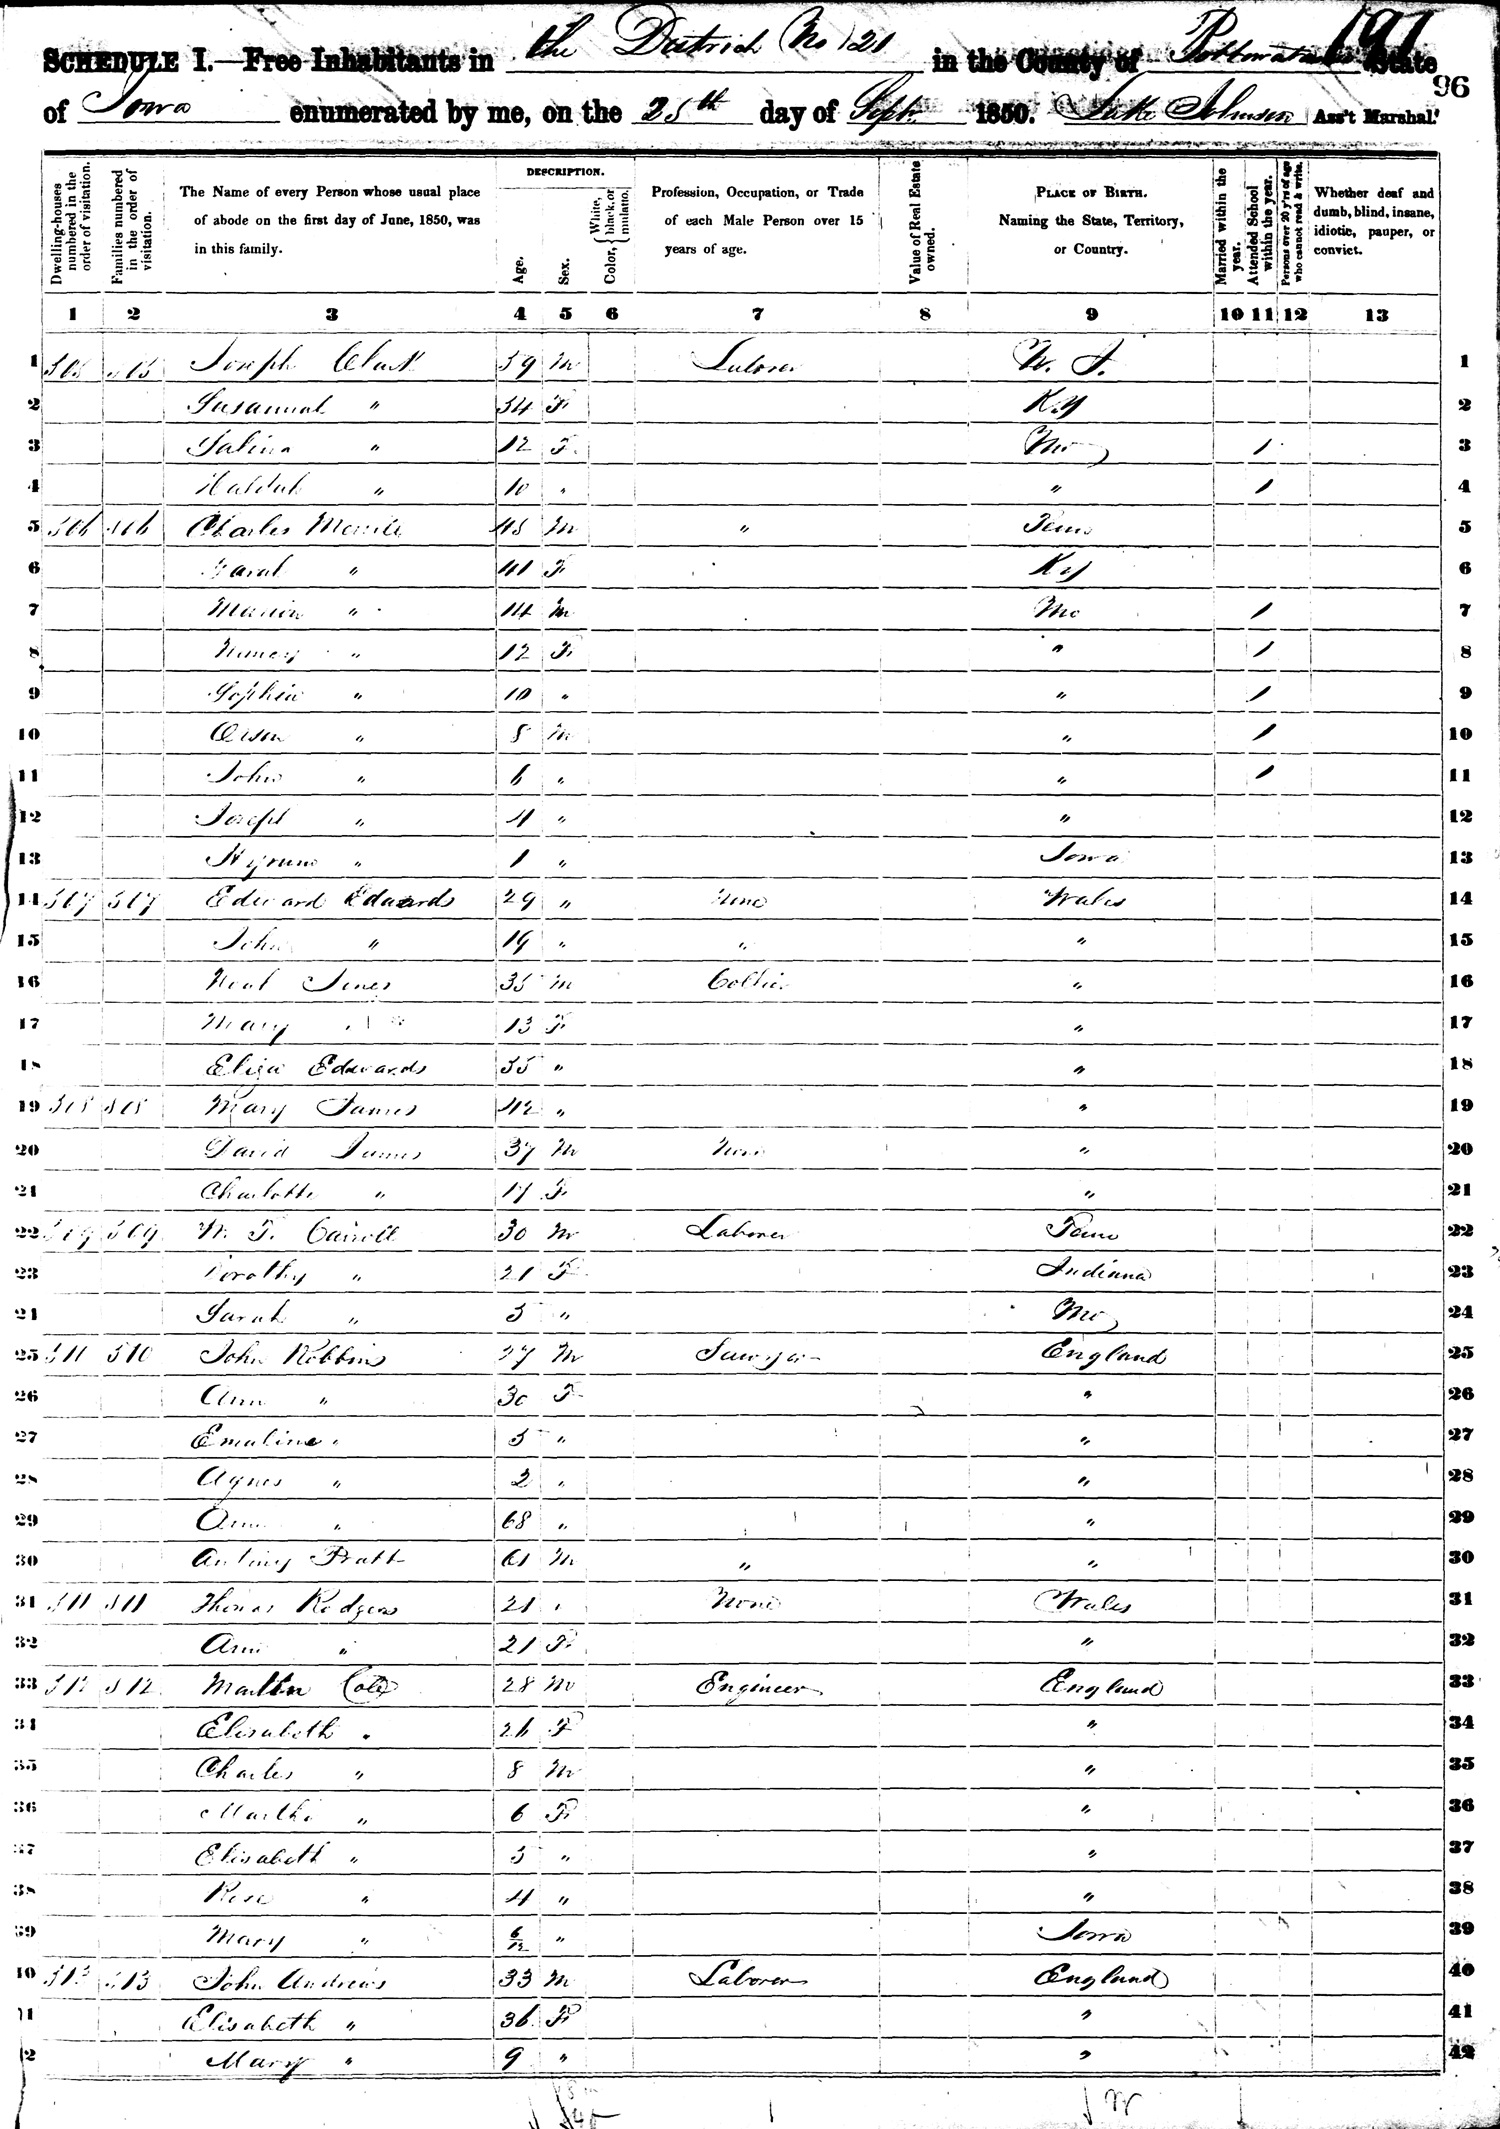 191
SCHEDULE I.—Free Inhabitants in the District No 21 in the County of Pottowatamie State
96
of Iowa enumerated by me, on the 25th day of Sept. 1850. Luke Johnson Ass't Marshal.
Dwelling-houses numbered in the order of visitation.
Families numbered in the order of visitation.
The Name of every Person whose usual place of abode on the first day of June, 1850, was in this family.
DESCRIPTION.
Age.
Sex.
Color, { White, black, or mulatto.
Profession, Occupation, or Trade of each Male Person over 15 years of age.
Value of Real Estate owned.
PLACE OF BIRTH. Naming the State, Territory, or Country.
Married within the year.
Attended School within the year.
Persons over 20 y'rs of age who cannot read & write.
Whether deaf and dumb, blind, insane, idiotic, pauper, or convict.
1 2 3 4 5 6 7 8 9 10 11 12 13
1 Joseph 39 M Laborer N. J. 1
2 Susannah " 34 F Ky 2
3 " 12 F Mo 1 3
4 " 10 " " 1 4
5 506 506 Charles M " 5
6 Sarah " 41 F Ky 6
7 Marion " 14 M Mo 1 7
8 Nancy " 12 F " 1 8
9 Sophia " 10 " " 1 9
10 Orson " 8 M " 1 10
11 John " 6 " " 1 11
12 Joseph " 4 " " 12
13 Hyrum " 1 " Iowa 13
14 507 507 Edward Edwards 29 " None Wales 14
15 John " 19 " " " 15
16 Jones 35 M Collier " 16
17 Mary 13 F " 17
18 Eliza Edwards 35 " " 18
19 508 508 Mary James 42 " " 19
20 David James 37 M None " 20
21 Charlotte " 17 F " 21
22 509 509 Carroll 30 M Laborer 22
23 Dorothy " 21 F Indiana 23
24 Sarah " 3 " Mo 24
25 511 510 John Robbins 27 M Sawyer England 25
26 Ann " 30 F " 26
27 Emaline " 5 " " 27
28 Agnes " 2 " " 28
29 Ann " 68 " " 29
30 Pratt 61 M " " 30
31 511 511 Thomas Rodgers 21 " None Wales 31
32 Ann " 21 F " 32
33 512 512 Cole 28 M Engineer England 33
34 Elisabeth " 26 F " 34
35 Charles " 8 M " 35
36 Martha " 6 F " 36
37 Elisabeth " 5 " " 37
38 Rose " 4 " " 38
39 Mary " 6/12 " Iowa 39
40 513 513 John Andrews 33 M Laborer England 40
41 Elisabeth " 36 F " 41
42 Mary " 9 " " 42